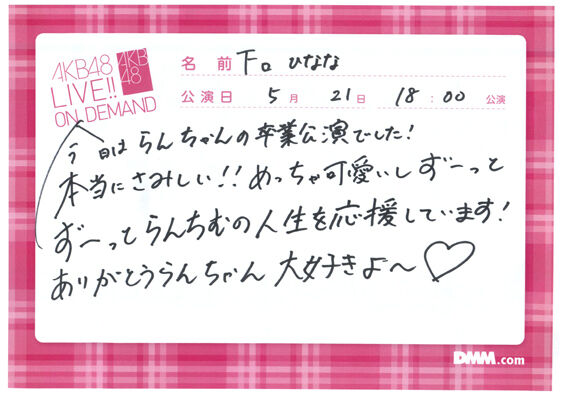 AKB48
LIVE!!
ON DEMAND
AKB
48
名前 下口 ひなな
公演日 5月 21日 18:00 公演
今日は らんちゃんの卒業公演でした!
本当にさみしい!! めっちゃ可愛いし ずーっと
ずーっと らんちむの人生を応援しています!
ありがとうらんちゃん 大好きよ〜♡
DMM.com